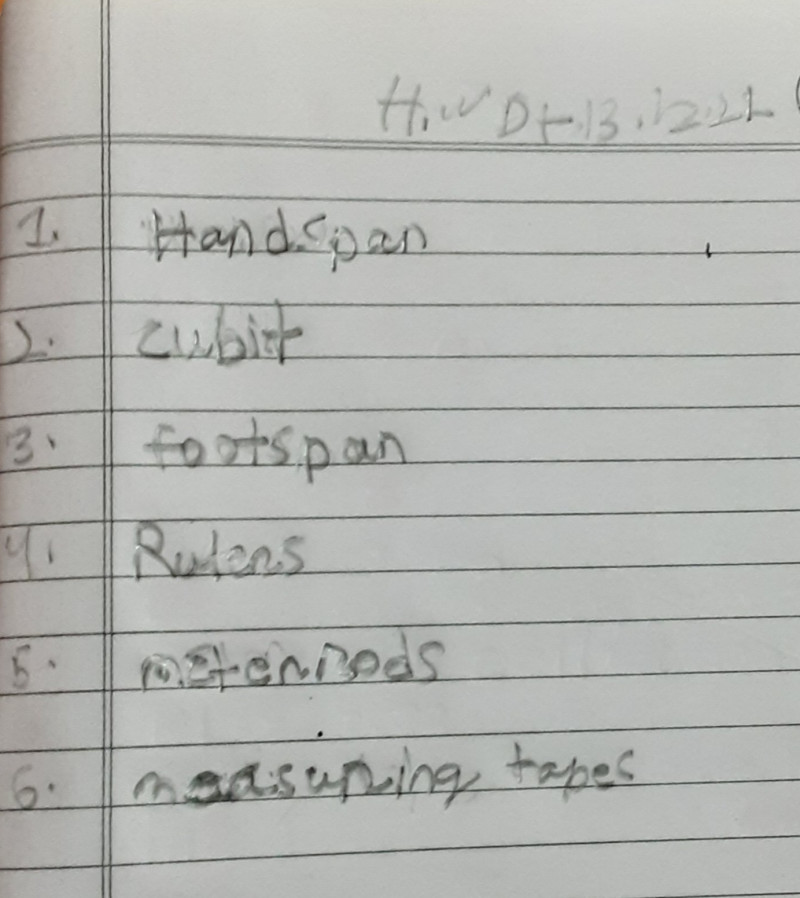 H.W Dt.13.12.21
1. Handspan
2. cubit
3. footspan
4. Rulers
5. meter rods
6. measuring tapes